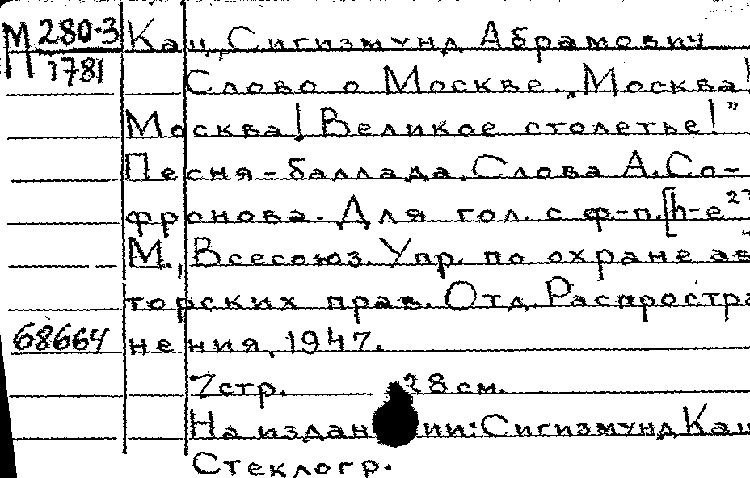 М 280-3
П 1781
Кац, Сигизмунд Абрамович
Слово о Москве. „Москва!
Москва! Великое столетье!"
Песня-баллада. Слова А. Со-
фронова. Для гол. с ф-п. [h-e²]
М., Всесоюз. Упр. по охране ав-
торских прав. Отд. Распростра-
68664 нения, 1947.
7 стр. 28 см.
На издании: Сигизмунд Кац
Стеклогр.